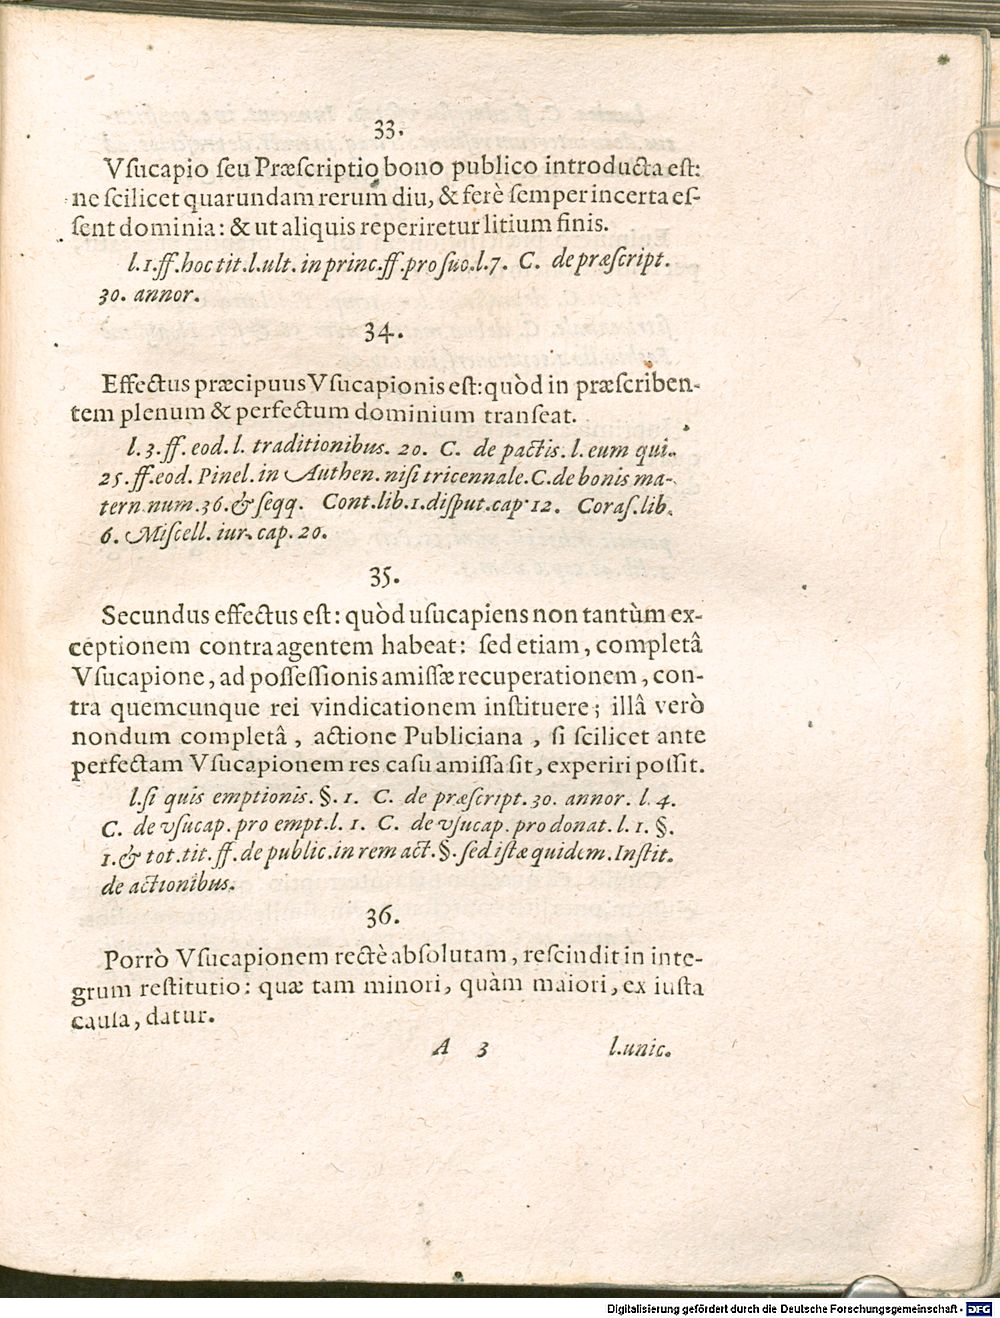 33.
Vsucapio seu Præscriptio bono publico introducta est:
ne scilicet quarundam rerum diu, & ferè semper incerta es-
sent dominia: & ut aliquis reperiretur litium finis.
l.1.ff.hoc tit.l.ult. in princ.ff.pro suo.l.7. C. de præscript.
30. annor.
34.
Effectus præcipuus Vsucapionis est: quòd in præscriben-
tem plenum & perfectum dominium transeat.
l.3.ff.eod.l. traditionibus. 20. C. de pactis. l. eum qui.
25.ff.eod. Pinel. in Authen. nisi tricennale.C.de bonis ma-
tern num.36.& seqq. Cont.lib.1.disput.cap.12. Coras.lib.
6. Miscell. iur. cap. 20.
35.
Secundus effectus est: quòd usucapiens non tantùm ex-
ceptionem contra agentem habeat: sed etiam, completâ
Vsucapione, ad possessionis amissæ recuperationem, con-
tra quemcunque rei vindicationem instituere; illâ verò
nondum completâ, actione Publiciana, si scilicet ante
perfectam Vsucapionem res casu amissa sit, experiri possit.
l.si quis emptionis. §. 1. C. de præscript. 30. annor. l. 4.
C. de vsucap. pro empt.l. 1. C. de vsucap. pro donat. l. 1. §.
1.& tot.tit.ff.de public.in rem act.§. sed istæ quidem. Instit.
de actionibus.
36.
Porrò Vsucapionem rectè absolutam, rescindit in inte-
grum restitutio: quæ tam minori, quàm maiori, ex iusta
causa, datur.
A 3 l.unic.
Digitalisierung gefördert durch die Deutsche Forschungsgemeinschaft - DFG